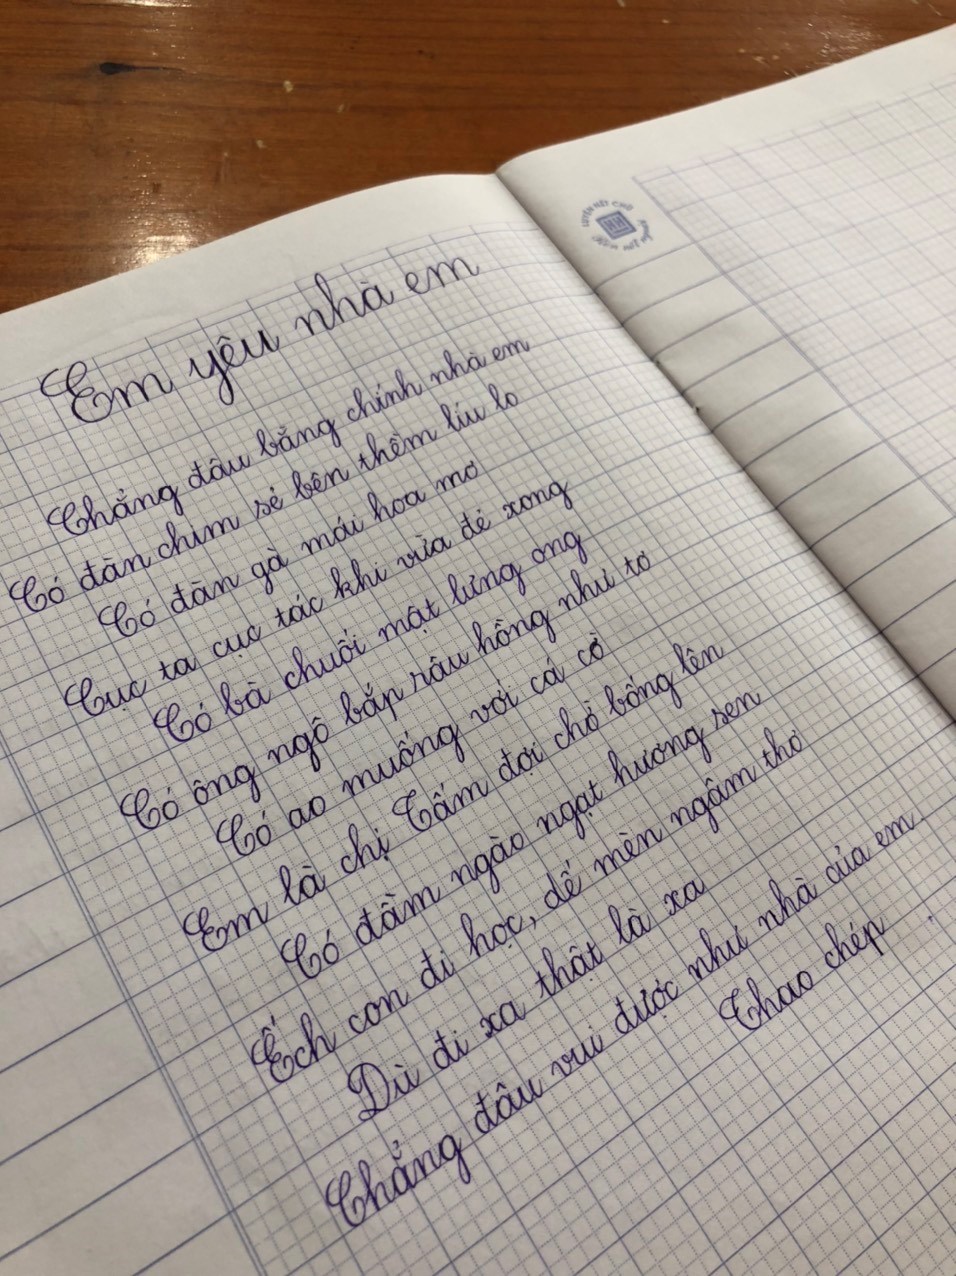 Em yêu nhà em
Chẳng đâu bằng chính nhà em
Có đàn chim sẻ bên thềm líu lo
Có đàn gà mái hoa mơ
Cục ta cục tác khi vừa đẻ xong
Có bà chuối mật lưng ong
Có ông ngô bắp râu hồng như tơ
Có ao muống với cá cờ
Em là chị Tấm đợi chờ bống lên
Có đầm ngào ngạt hương sen
Ếch con đi học, dế mèn ngâm thơ
Dù đi xa thật là xa
Chẳng đâu vui được như nhà của em.
Thao chép